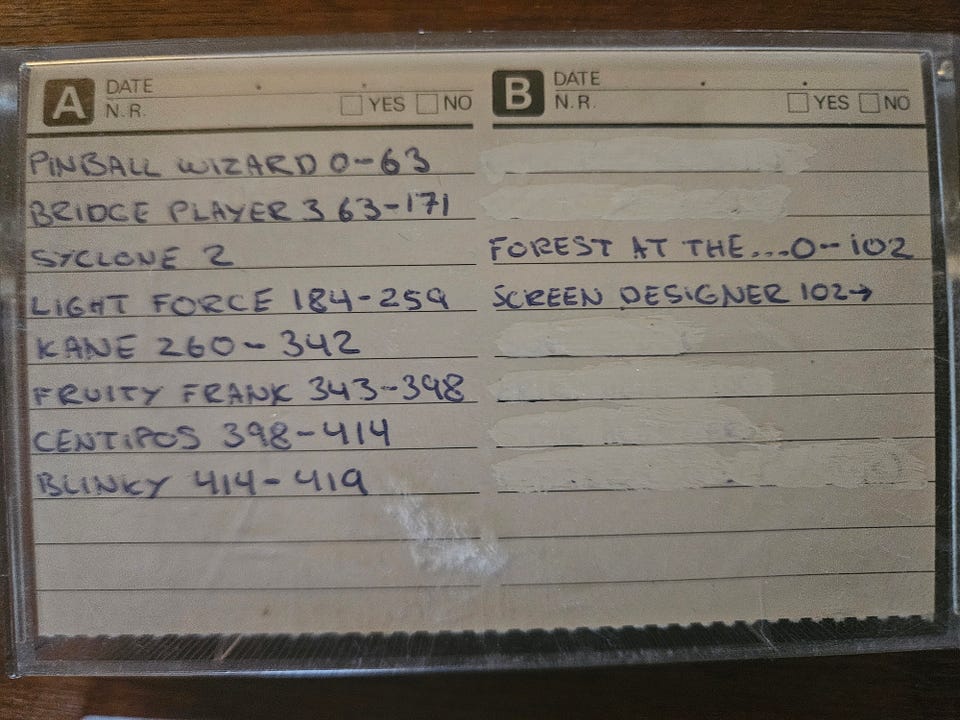 A DATE
N.R. YES NO
PINBALL WIZARD 0-63
BRIDGE PLAYER 3 63-171
SYCLONE 2
LIGHT FORCE 184-259
KANE 260-342
FRUITY FRANK 343-398
CENTIPOS 398-414
BLINKY 414-419
B DATE
N.R. YES NO
FOREST AT THE...0-102
SCREEN DESIGNER 102→